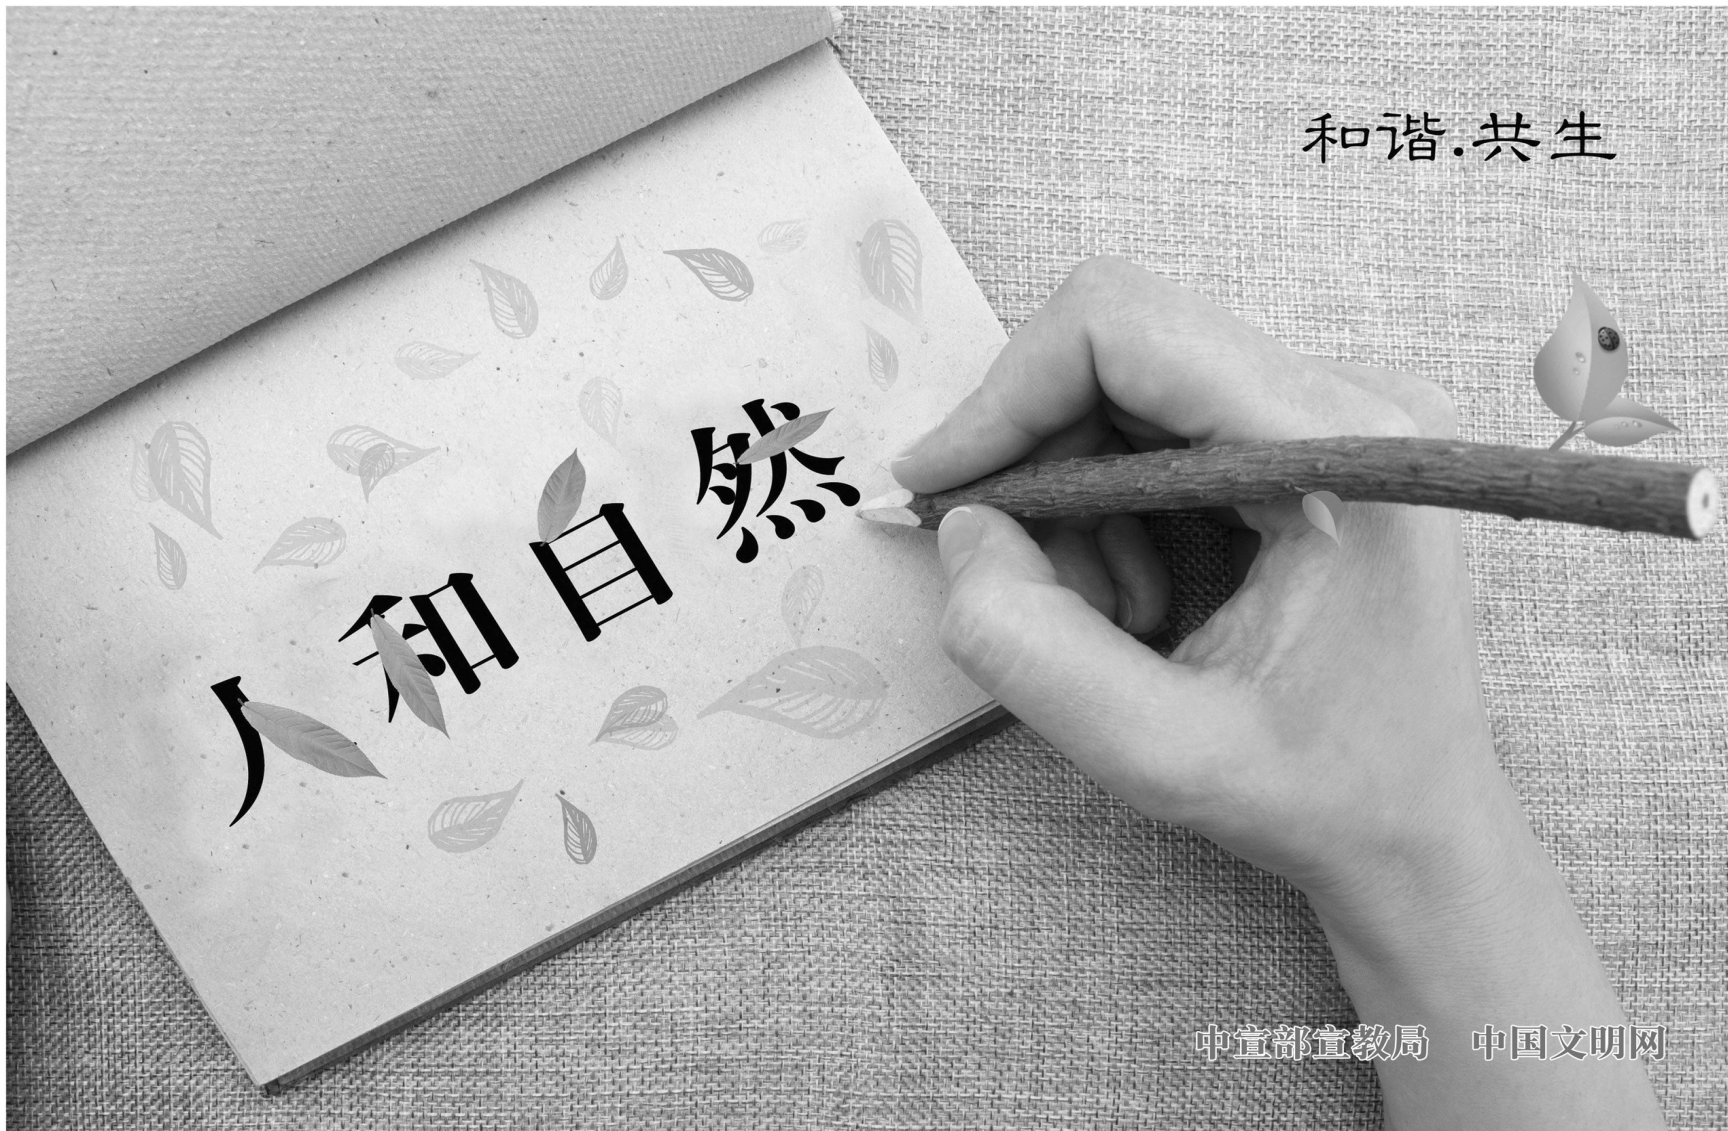 和谐.共生
人和自然
中宣部宣教局 中国文明网